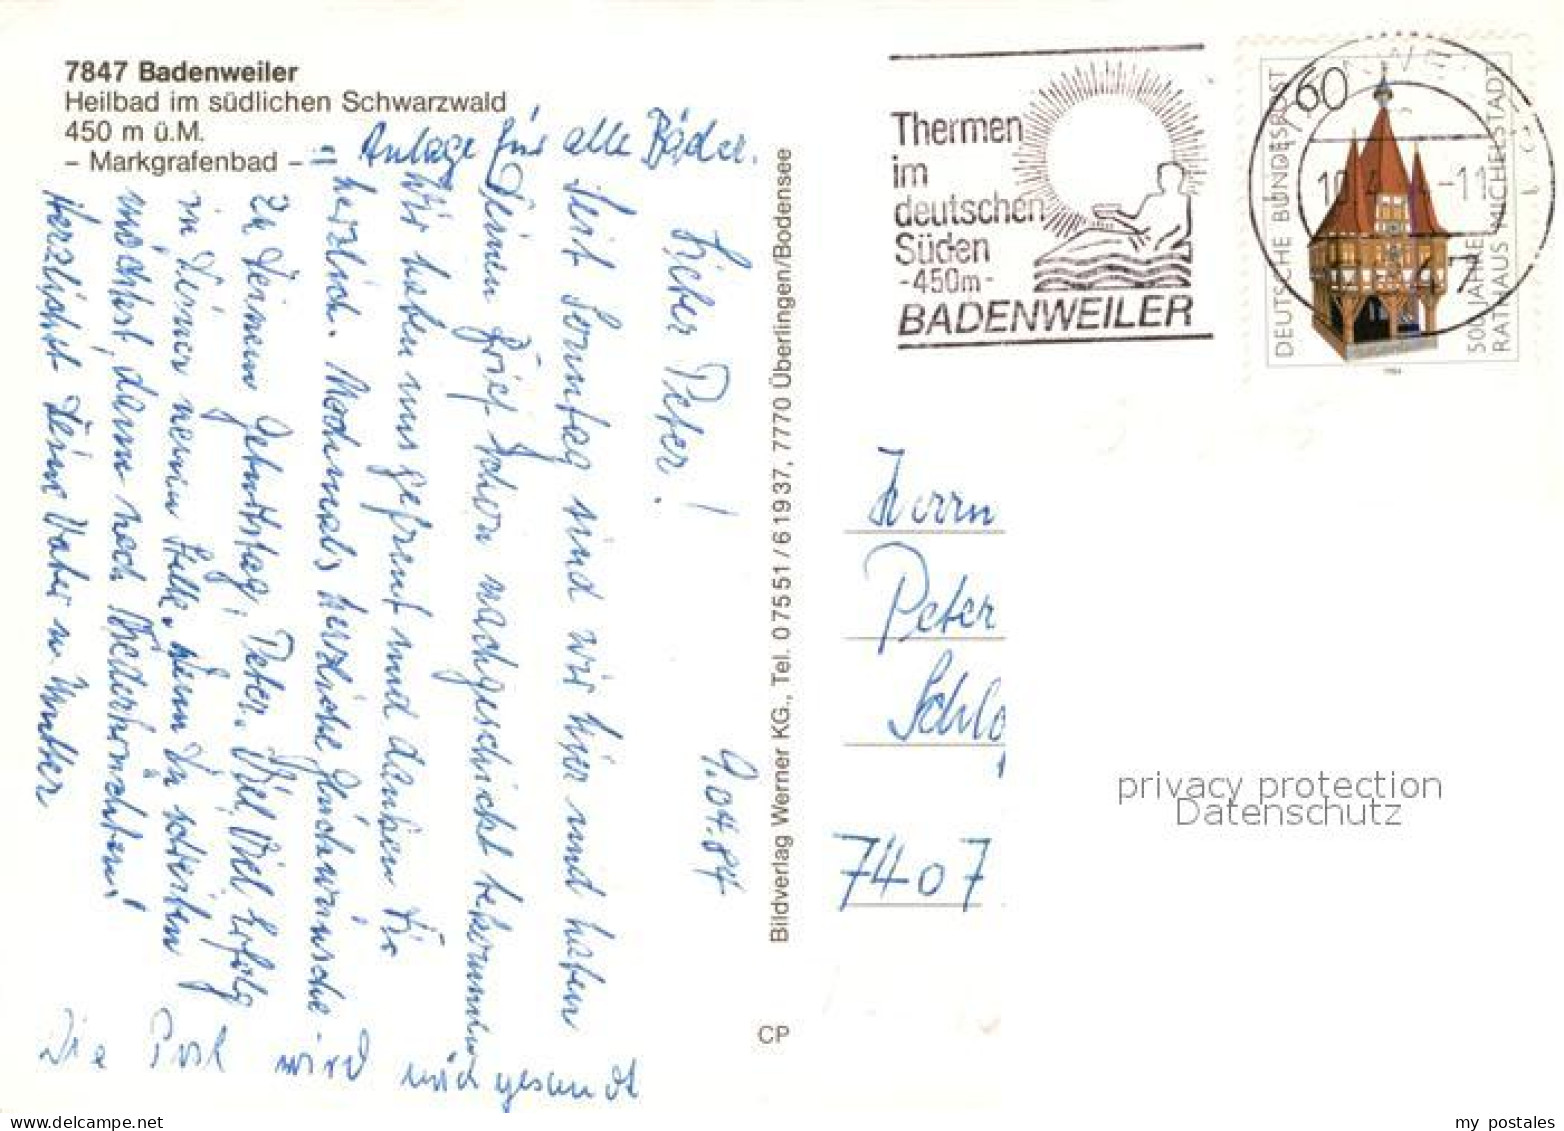 7847 Badenweiler
Heilbad im südlichen Schwarzwald
450 m ü.M.
- Markgrafenbad -
= Anlage für alle Bäder.
9.04.84
Lieber Peter!
Seit Sonntag sind wir hier und haben
Deinen Brief schon nachgeschickt bekommen
Wir haben uns gefreut und danken Dir
herzlich. Nochmals herzliche Glückwünsche
zu Deinem Geburtstag, Peter. Viel Viel Erfolg
in Deiner neuen Stelle. Wenn Du schreiben
möchtest, dann nach Niederhörnchen!
Herzlichst Deine Vater u. Mutter
Die Post wird nachgesandt
Bildverlag Werner KG., Tel. 07551/61937, 7770 Überlingen/Bodensee
CP
Thermen
im
deutschen
Süden
-450m-
BADENWEILER
60
DEUTSCHE BUNDESPOST
500 JAHRE
RATHAUS MICHELSTADT
1984
Herrn
Peter
Schlo
7407
privacy protection
Datenschutz
www.delcampe.net
my_postales